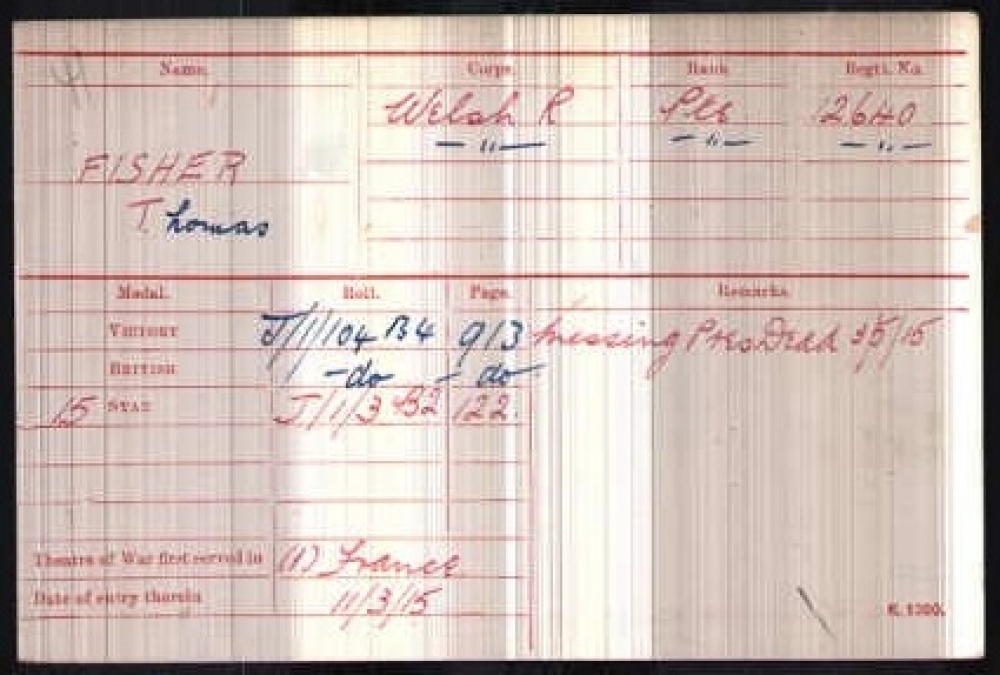 Name. Corps. Rank Regtl. No.
Welsh R Pte 12640
—"— —"— —"—
FISHER
Thomas
Medal. Roll. Page. Remarks.
VICTORY J/1/104 B4 913 Missing Pres Dead /5/15
BRITISH -do -do-
15 STAR J/1/3 B2 122.
Theatre of War first served in (1) France
Date of entry therein 11/3/15
K. 1380.